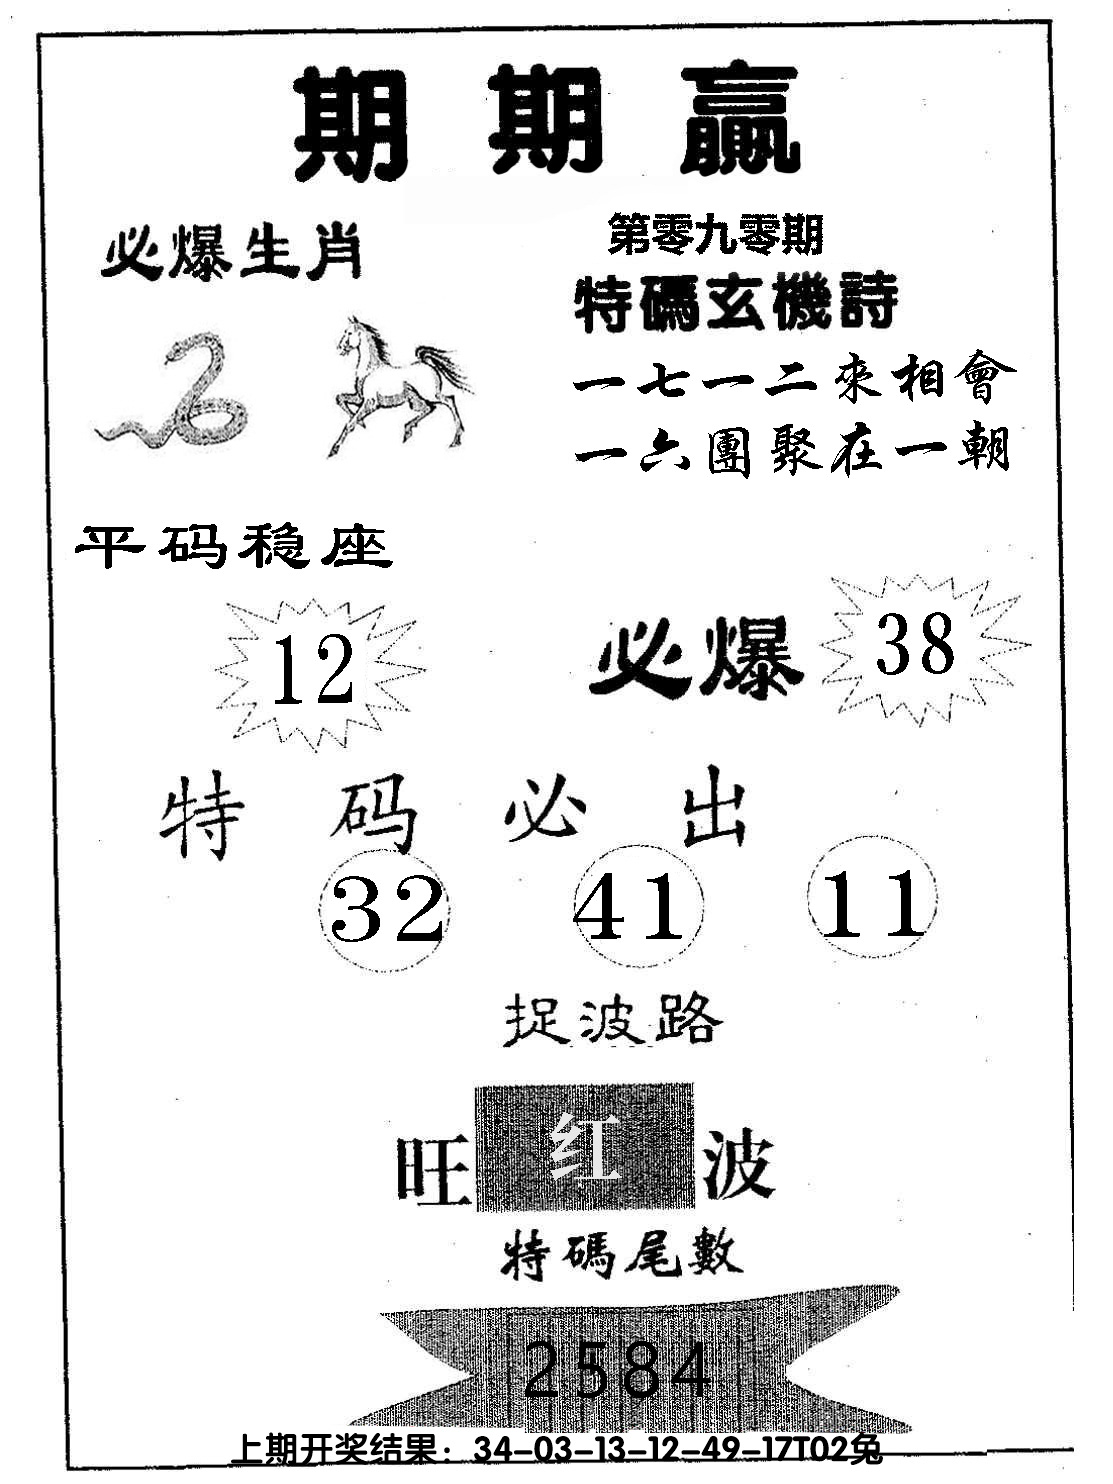 期期赢
必爆生肖
第零九零期
特碼玄機詩
一七一二來相會
一六團聚在一朝
平码稳座
12
必爆 38
特码必出
32 41 11
捉波路
旺红波
特碼尾數
2584
上期开奖结果：34-03-13-12-49-17T02兔